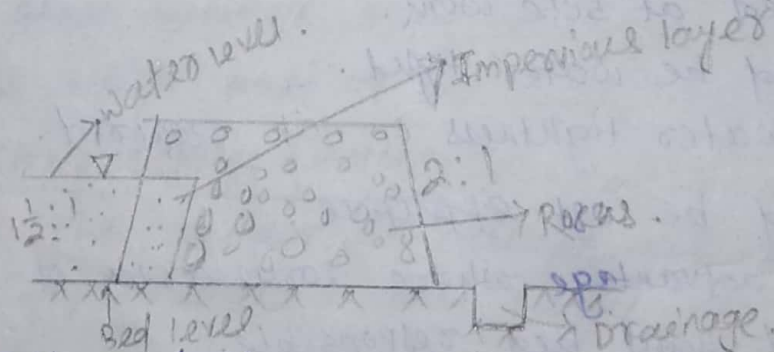 Water level.
Impervious layer
1 1/2 : 1
2 : 1
Rocks.
Bed level
Drainage.